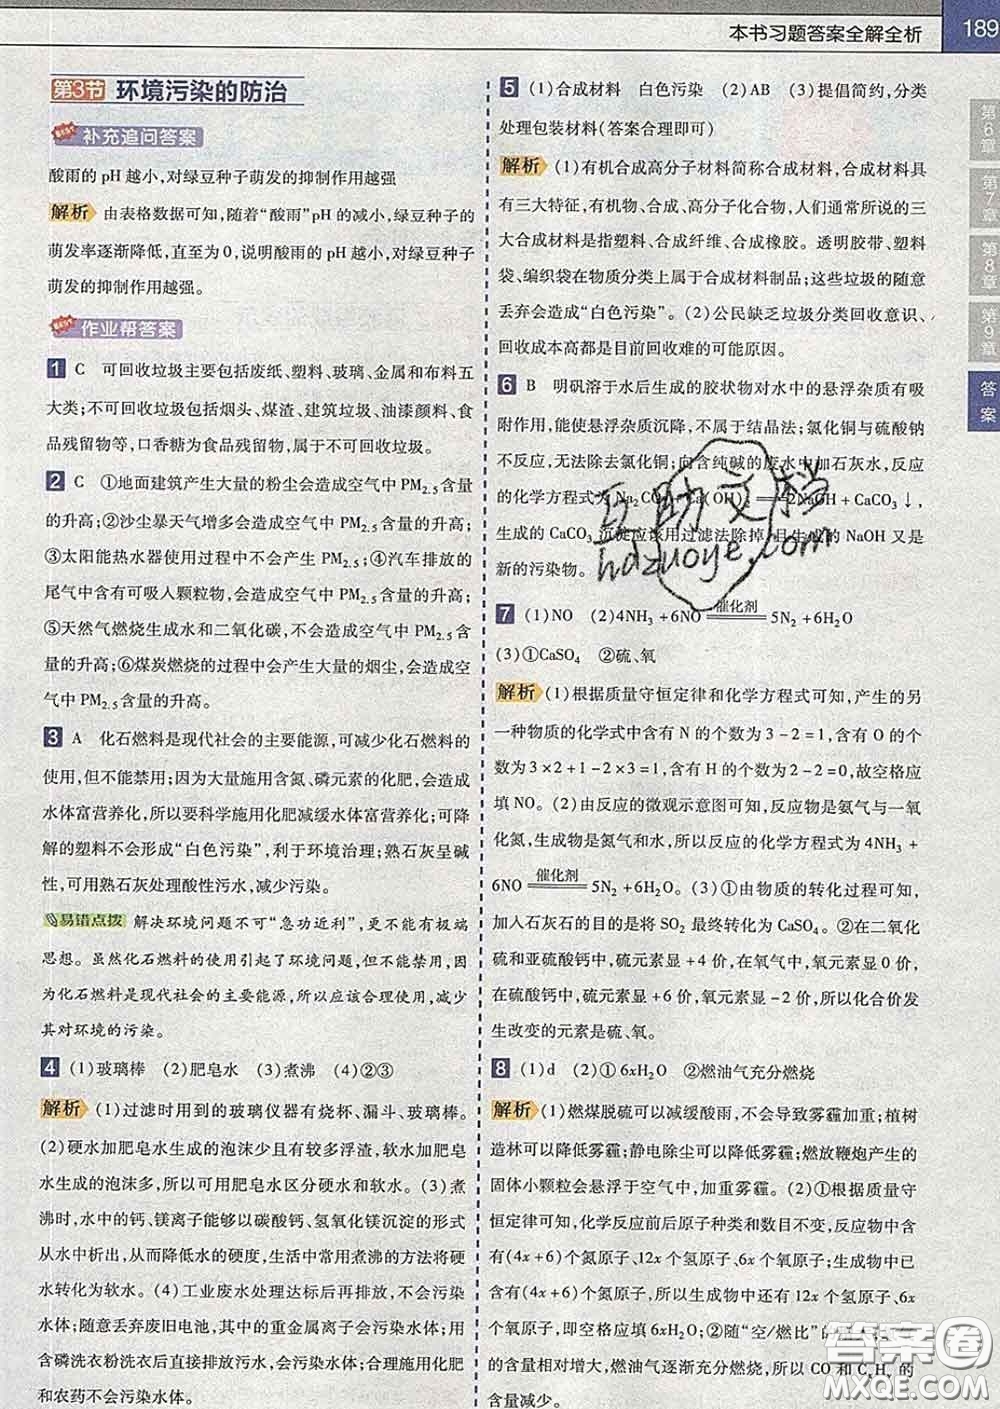 本书习题答案全解全析
189
第3节 环境污染的防治
补充追问答案
酸雨的 pH 越小,对绿豆种子萌发的抑制作用越强
解析 由表格数据可知,随着“酸雨”pH 的减小,绿豆种子的
萌发率逐渐降低,直至为 0,说明酸雨的 pH 越小,对绿豆种子
萌发的抑制作用越强。
作业帮答案
1 C 可回收垃圾主要包括废纸、塑料、玻璃、金属和布料五
大类;不可回收垃圾包括烟头、煤渣、建筑垃圾、油漆颜料、食
品残留物等,口香糖为食品残留物,属于不可回收垃圾。
2 C ①地面建筑产生大量的粉尘会造成空气中 PM2.5含量
的升高;②沙尘暴天气增多会造成空气中 PM2.5含量的升高;
③太阳能热水器使用过程中不会产生 PM2.5;④汽车排放的
尾气中含有大量的可吸入颗粒物,会造成 PM2.5含量的升高;
⑤天然气燃烧生成水和二氧化碳,不会造成空气中 PM2.5含
量的升高;⑥煤炭燃烧的过程中会产生大量的烟尘,会造成空
气中 PM2.5含量的升高。
3 A 化石燃料是现代社会的主要能源,可减少化石燃料的
使用,但不能禁用;因为大量施用含氮、磷元素的化肥,会造成
水体富营养化,所以要科学施用化肥减缓水体富营养化;可降
解的塑料不会形成“白色污染”,利于环境治理;熟石灰呈碱
性,可用熟石灰处理酸性污水,减少污染。
易错点拨 解决环境问题不可“急功近利”,更不能有极端
思想。虽然化石燃料的使用引起了环境问题,但不能禁用,因
为化石燃料是现代社会的主要能源,所以应该合理使用,减少
其对环境的污染。
4 (1)玻璃棒 (2)肥皂水 (3)煮沸 (4)②③
解析 (1)过滤时用到的玻璃仪器有烧杯、漏斗、玻璃棒。
(2)硬水加肥皂水生成的泡沫少且有较多浮渣,软水加肥皂
水生成的泡沫多,所以可用肥皂水区分硬水和软水。(3)煮
沸时,水中的钙、镁离子能够以碳酸钙、氢氧化镁沉淀的形式
从水中析出,从而降低水的硬度,生活中常用煮沸的方法将硬
水转化为软水。(4)工业废水处理达标后再排放,不会污染
水体;随意丢弃废旧电池,其中的重金属离子会污染水体;使用
含磷洗衣粉洗衣后直接排放污水,会污染水体;合理施用化肥
和农药不会污染水体。
5 (1)合成材料 白色污染 (2)AB (3)提倡简约,分类
处理包装材料(答案合理即可)
解析 (1)有机合成高分子材料简称合成材料,合成材料具
有三大特征,有机物、合成、高分子化合物,人们通常所说的三
大合成材料是指塑料、合成纤维、合成橡胶。透明胶带、塑料
袋、编织袋在物质分类上属于合成材料制品;这些垃圾的随意
丢弃会造成“白色污染”。(2)公民缺乏垃圾分类回收意识、
回收成本高都是目前回收难的可能原因。
6 B 明矾溶于水后生成的胶状物对水中的悬浮杂质有吸
附作用,能使悬浮杂质沉降,不属于结晶法;氯化铜与硫酸钠
不反应,无法除去氯化铜;向含纯碱的废水中加石灰水,反应
的化学方程式为 Na2CO3+Ca(OH)2══2NaOH+CaCO3↓,
生成的 CaCO3沉淀应该用过滤法除掉,且生成的 NaOH 又是
新的污染物。
7 (1)NO (2)4NH3+6NO 催化剂══ 5N2+6H2O
(3)①CaSO4 ②硫、氧
解析 (1)根据质量守恒定律和化学方程式可知,产生的另
一种物质的化学式中含有 N 的个数为 3-2=1,含有 O 的个
数为 3×2+1-2×3=1,含有 H 的个数为 2-2=0,故空格应
填 NO。(2)由反应的微观示意图可知,反应物是氨气与一氧
化氮,生成物是氮气和水,所以反应的化学方程式为 4NH3+
6NO 催化剂══ 5N2+6H2O。(3)①由物质的转化过程可知,
加入石灰石的目的是将 SO2 最终转化为 CaSO4。②在二氧化
硫和亚硫酸钙中,硫元素显+4 价,在氧气中,氧元素显 0 价,
在硫酸钙中,硫元素显+6 价,氧元素显-2 价,所以化合价发
生改变的元素是硫、氧。
8 (1)d (2)①6xH2O ②燃油气充分燃烧
解析 (1)燃煤脱硫可以减缓酸雨,不会导致雾霾加重;植树
造林可以降低雾霾;静电除尘可以降低雾霾;燃放鞭炮产生的
固体小颗粒会悬浮于空气中,加重雾霾。(2)①根据质量守
恒定律可知,化学反应前后原子种类和数目不变,反应物中含
有(4x+6)个氮原子、12x 个氢原子、6x 个氧原子;生成物中已
含有(4x+6)个氮原子,所以生成物中还有 12x 个氢原子、6x
个氧原子,即空格应填 6xH2O;②随“空/燃比”的
的含量相对增大,燃油气逐渐充分燃烧,所以 CO 和 CxHy 的
含量减少。
第6章
第7章
第8章
第9章
答案
互助文档
hdzuoye.com
答案圈
MXQE.COM